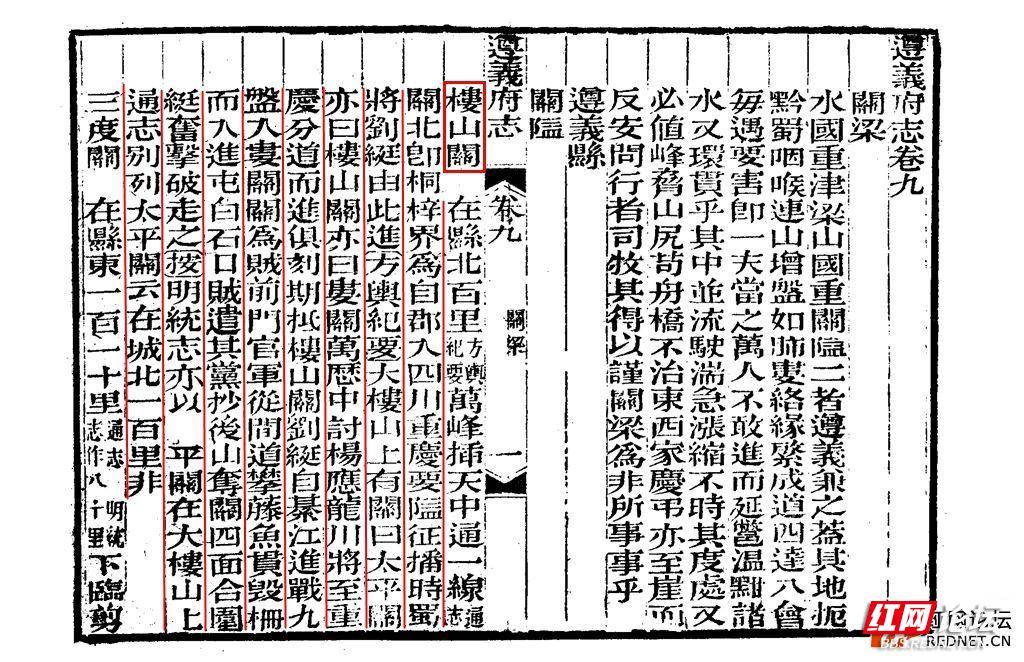 遵義府志卷九
關梁
水國重津梁山國重關隘二者遵義兼之蓋其地扼
黔蜀咽喉連山增盤如肺婁絡緣繄成道四達八會
每遇要害卽一夫當之萬人不敢進而延鼈溫黚諸
水又環貫乎其中並流駛湍急漲縮不時其度處又
必值峰脊山尻茍舟橋不治東西家慶弔亦至崖而
反安問行者司牧其得以謹關梁爲非所事事乎
遵義縣
關隘
遵義府志 卷九 關梁 一
樓山關 在縣北百里方輿紀要萬峰插天中通一線通志
關北卽桐梓界爲自郡入四川重慶要隘征播時蜀
將劉綎由此進方輿紀要大樓山上有關曰太平關
亦曰樓山關亦曰婁關萬歷中討楊應龍川將至重
慶分道而進俱刻期抵樓山關劉綎自綦江進戰九
盤入婁關關爲賊前門官軍從間道攀藤魚貫毀柵
而入進屯白石口賊遣其黨抄後山奪關四面合圍
綎奮擊破走之按明統志亦以 平關在大樓山上
通志別列太平關云在城北一百里非
三度關 在縣東一百一十里通志明統志作八十里下臨剪
红网论坛
BBS.REDNET.CN
REDNET.CN